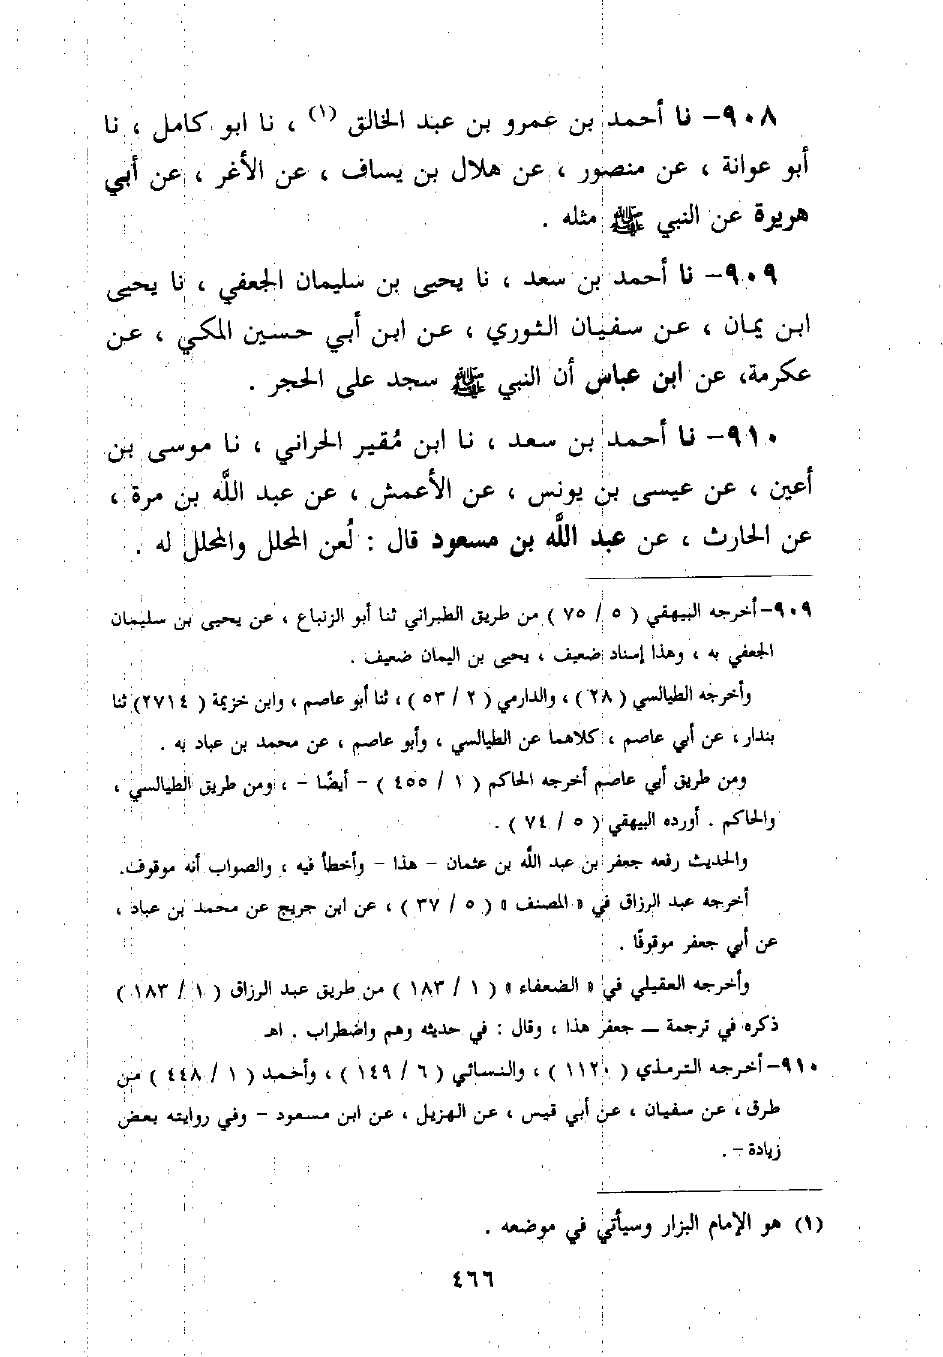 ٩٠٨- نا أحمد بن عمرو بن عبد الخالق (١) ، نا ابو كامل ، نا
أبو عوانة ، عن منصور ، عن هلال بن يساف ، عن الأغر ، عن أبي
هريرة عن النبي ﷺ مثله .
٩٠٩- نا أحمد بن سعد ، نا يحيى بن سليمان الجعفي ، نا يحيى
ابن يمان ، عن سفيان الثوري ، عن ابن أبي حسين المكي ، عن
عكرمة، عن ابن عباس أن النبي ﷺ سجد على الحجر .
٩١٠- نا أحمد بن سعد ، نا ابن مُقير الحراني ، نا موسى بن
أعين ، عن عيسى بن يونس ، عن الأعمش ، عن عبد اللَّه بن مرة ،
عن الحارث ، عن عبد اللَّه بن مسعود قال : لُعن المحلل والمحلل له .
٩٠٩- أخرجه البيهقي ( ٥ / ٧٥ ) من طريق الطبراني ثنا أبو الزنباع ، عن يحيى بن سليمان
الجعفي به ، وهذا إسناد ضعيف ، يحيى بن اليمان ضعيف .
وأخرجه الطيالسي ( ٢٨ ) ، والدارمي ( ٢ / ٥٣ ) ، ثنا أبو عاصم ، وابن خزيمة ( ٢٧١٤) ثنا
بندار ، عن أبي عاصم ، كلاهما عن الطيالسي ، وأبو عاصم ، عن محمد بن عباد به .
ومن طريق أبي عاصم أخرجه الحاكم ( ١ / ٤٥٥ ) - أيضًا - ، ومن طريق الطيالسي ،
والحاكم . أورده البيهقي ( ٥ / ٧٤ ) .
والحديث رفعه جعفر بن عبد اللَّه بن عثمان - هذا - وأخطأ فيه ، والصواب أنه موقوف.
أخرجه عبد الرزاق في « المصنف » ( ٥ / ٣٧ ) ، عن ابن جريج عن محمد بن عباد ،
عن أبي جعفر موقوفًا .
وأخرجه العقيلي في « الضعفاء » ( ١ / ١٨٣ ) من طريق عبد الرزاق ( ١ / ١٨٣ )
ذكره في ترجمة ــ جعفر هذا ، وقال : في حديثه وهم واضطراب . اهـ
٩١٠- أخرجه الترمذي ( ١١٢٠ ) ، والنسائي ( ٦ / ١٤٩ ) ، وأحمد ( ١ / ٤٤٨ ) من
طرق ، عن سفيان ، عن أبي قيس ، عن الهزيل ، عن ابن مسعود - وفي روايته بعض
زيادة - .
(١) هو الإمام البزار وسيأتي في موضعه .
٤٦٦